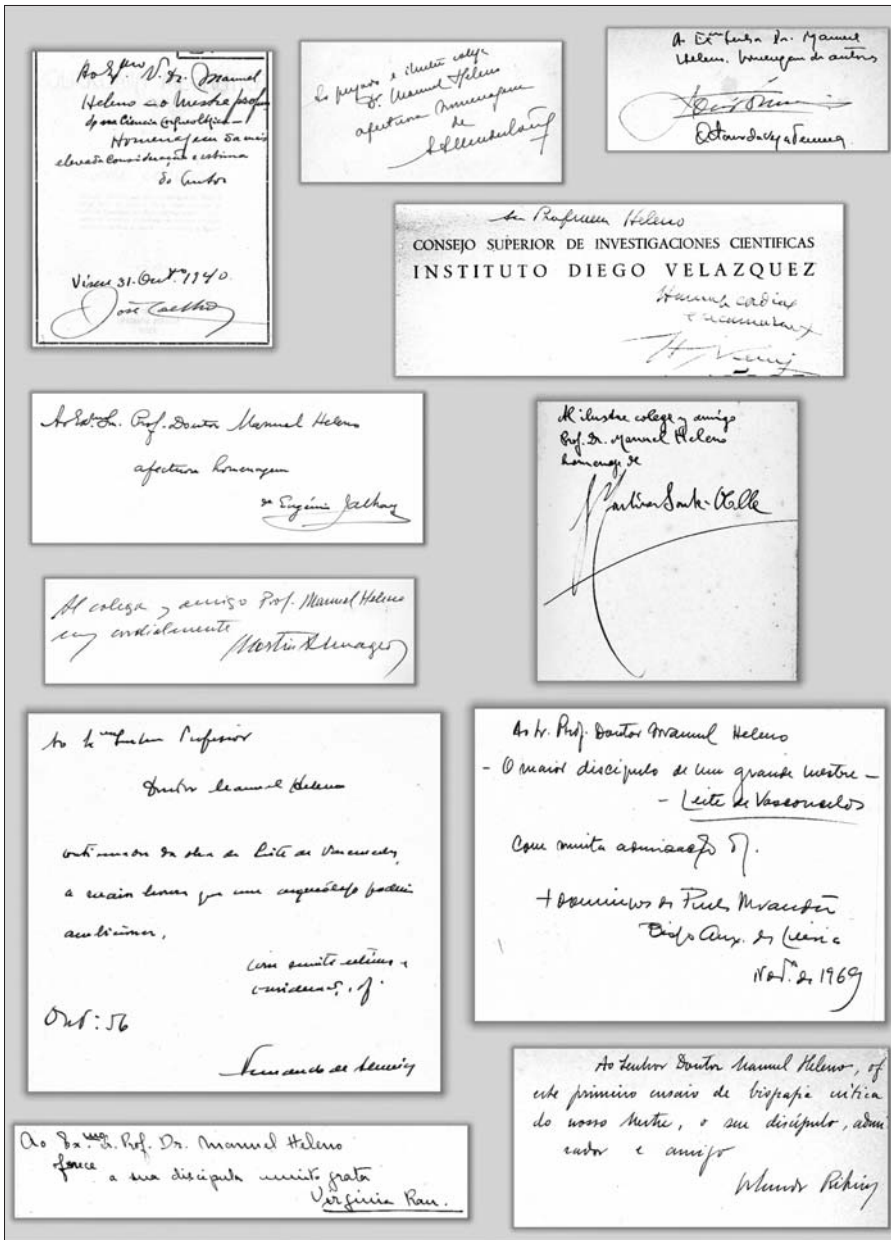 Ao Ex.mo S. Dr. Manuel
Heleno ao Mestre
da sua Ciencia Arqueológica —
Homenagem da mais
elevada consideração e estima
do Autor
Viseu 31. Out.º 1940.
José Coelho
Ao prezado e ilustre colega
Dr. Manuel Heleno
afectuosa homenagem
de
A Ex.mo Senhor Dr. Manuel
Heleno. homenagem do autor
Octavio da Veiga Ferreira
Professeur Heleno
CONSEJO SUPERIOR DE INVESTIGACIONES CIENTIFICAS
INSTITUTO DIEGO VELAZQUEZ
Hommage cordial
Ao Ex.mo Sr. Prof. Doutor Manuel Heleno
afectuosa homenagem
de Eugénio Jalhay
Al ilustre colega y amigo
Prof. Dr. Manuel Heleno
homenaje de
Martínez Santa-Olalla
Al colega y amigo Prof. Manuel Heleno
muy cordialmente
Martín Almagro
Ao Senhor Professor
Doutor Manuel Heleno
continuador da obra de Leite de Vasconcelos,
a maior honra que um arqueólogo poderia
ambicionar,
com muita estima e
consideração, of.
Out: 56
Fernando de
Ao Sr. Prof. Doutor Manuel Heleno
- O maior discípulo de um grande mestre -
- Leite de Vasconcelos
Com muita admiração of.
+ Domingos de Pinho Brandão
Bispo Aux. de Leiria
Nov.º de 1969
Ao Senhor Doutor Manuel Heleno, of
este primeiro ensaio de biografia crítica
do nosso Mestre, o seu discípulo, admi
rador e amigo
Orlando Ribeiro
Ao Ex.mo Sr. Prof. Dr. Manuel Heleno
oferece
a sua discípula muito grata
Virgínia Rau.